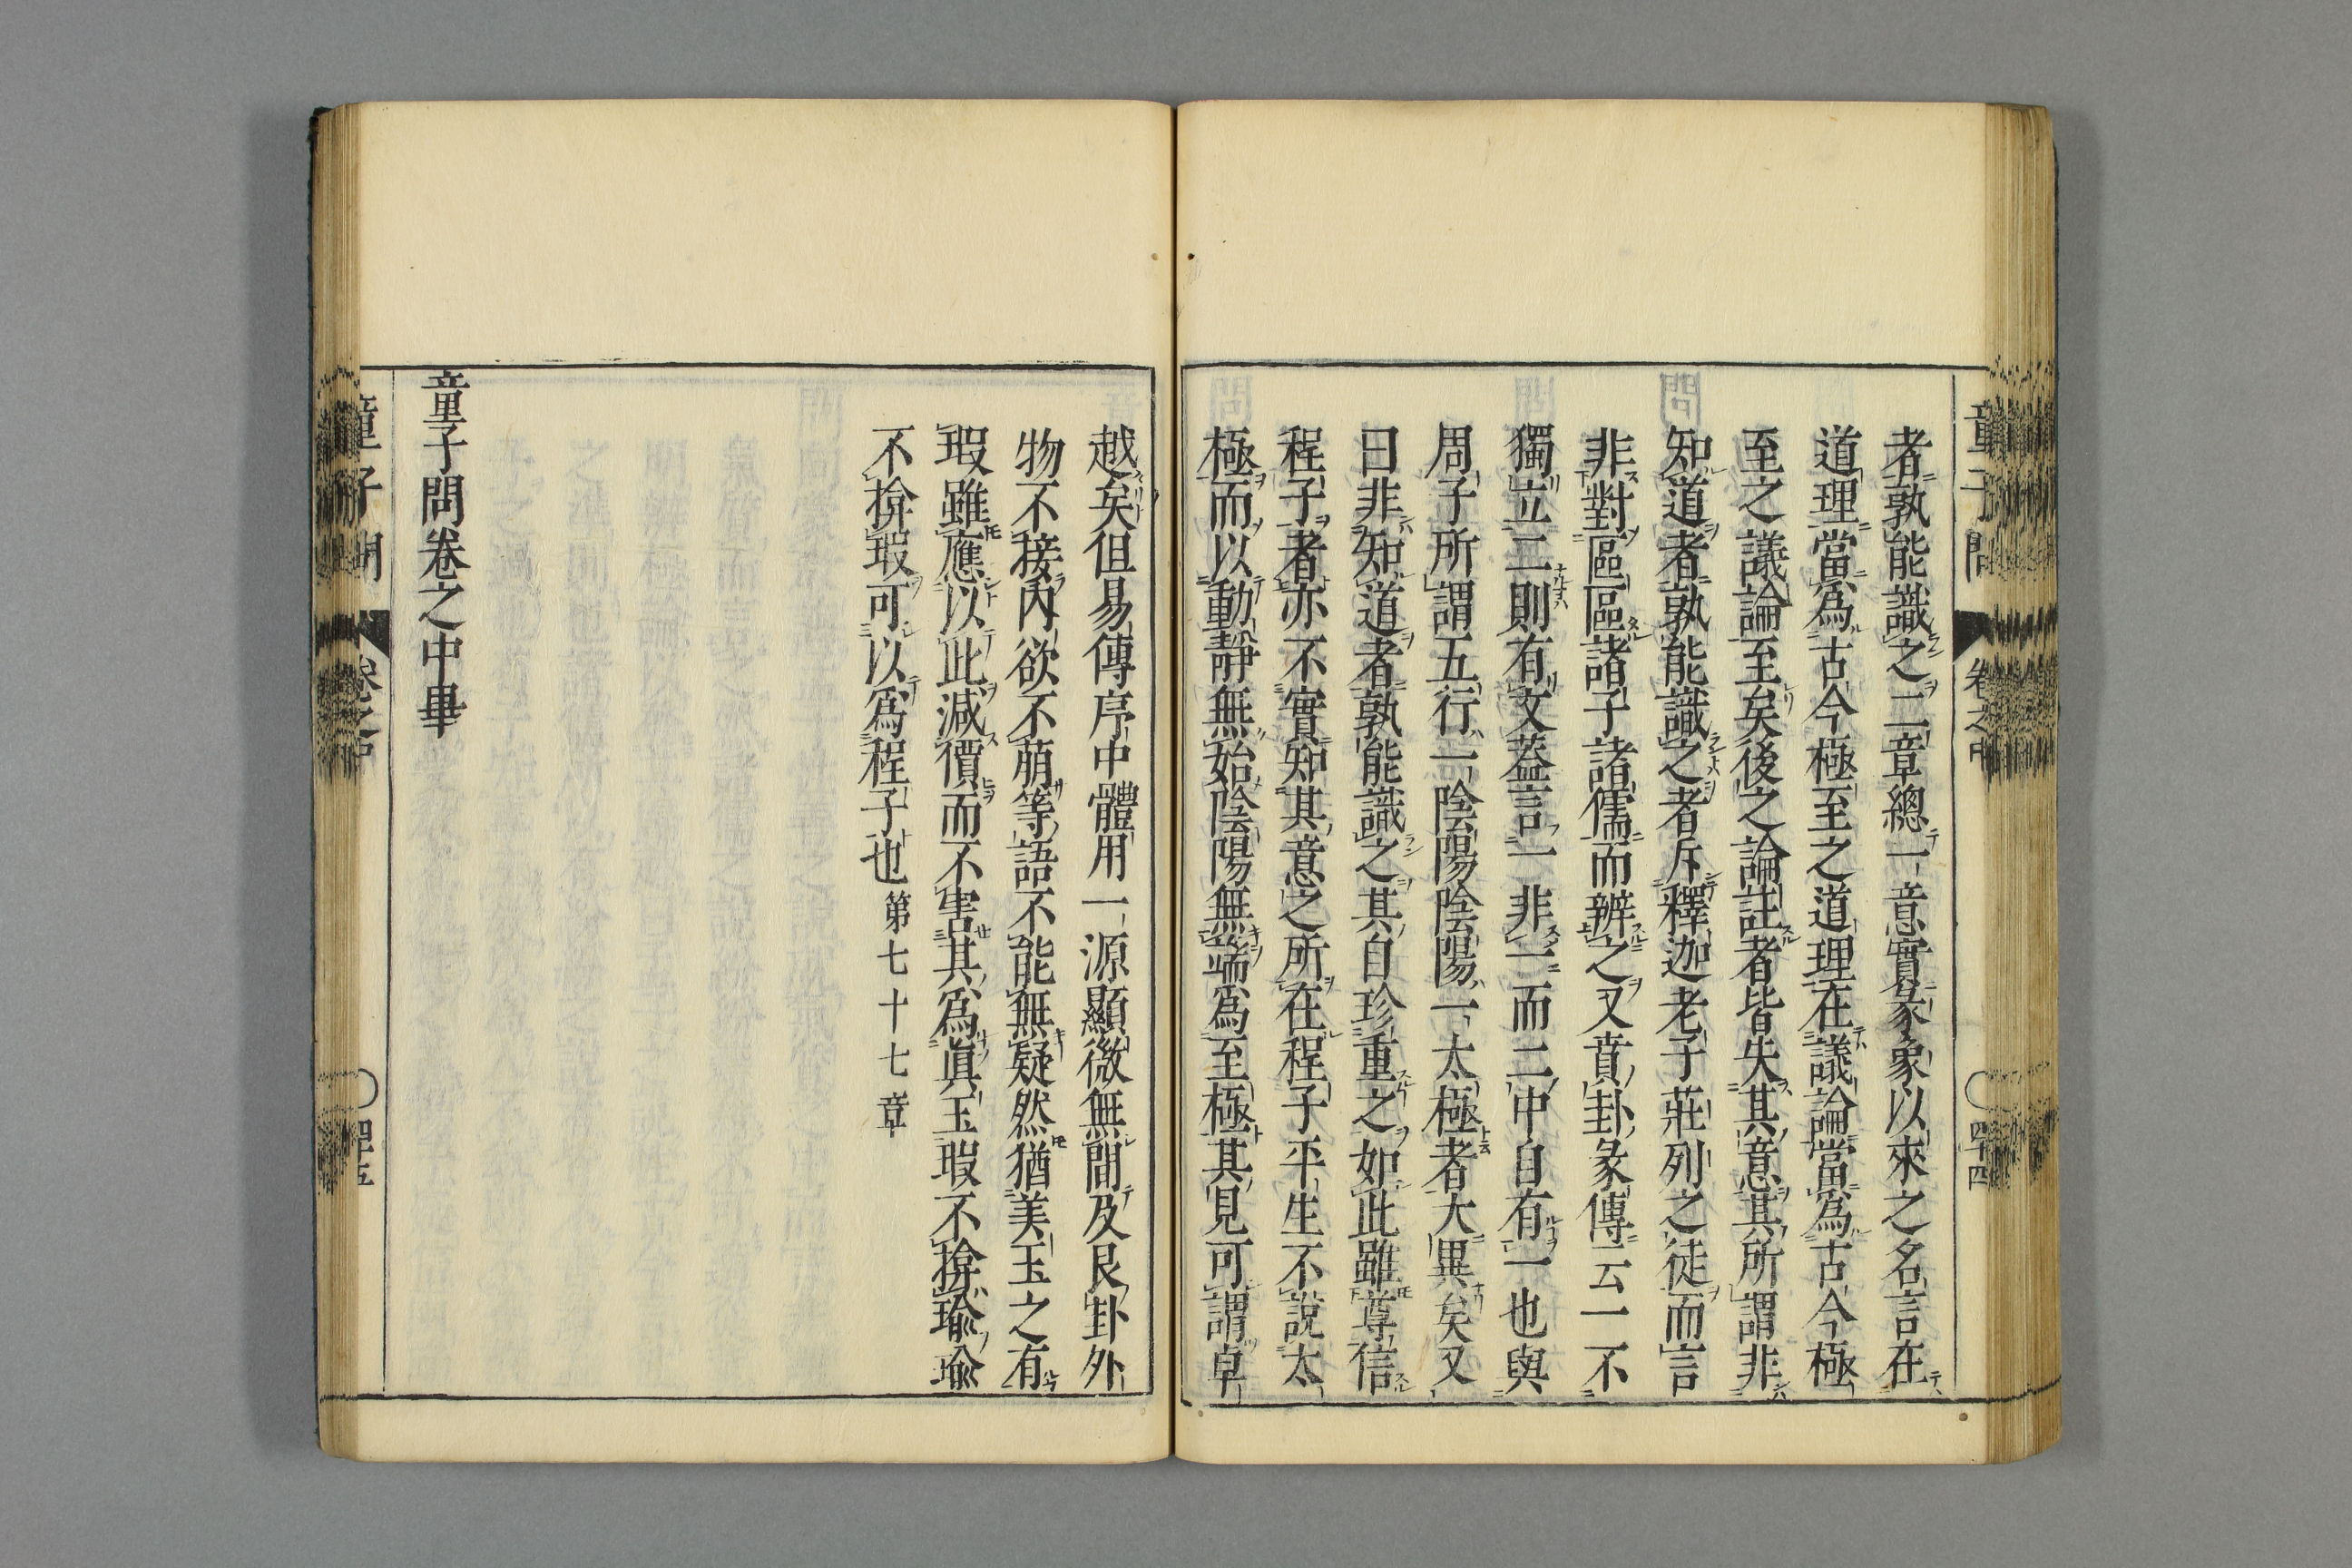 者孰能識之二章總一意實彖象以來之名言在
道理當爲古今極至之道理在議論當爲古今極
至之議論至矣後之論註者皆失其意其所謂非
知道者孰能識之者斥釋迦老子莊列之徒而言
非對區區諸子諸儒而辨之又賁卦彖傳云一不
獨立二則有文蓋言一非二而二中自有一也與
周子所謂五行一陰陽陰陽一太極者大異矣又
曰非知道者孰能識之其自珍重之如此雖尊信
程子者亦不實知其意之所在程子平生不說太
極而以動靜無始陰陽無端爲至極其見可謂卓
越矣但易傳序中體用一源顯微無間及艮卦外
物不接內欲不萠等語不能無疑然猶美玉之有
瑕雖應以此減價而不害其爲眞玉瑕不揜瑜瑜
不揜瑕可以爲程子也 第七十七章
童子問卷之中畢